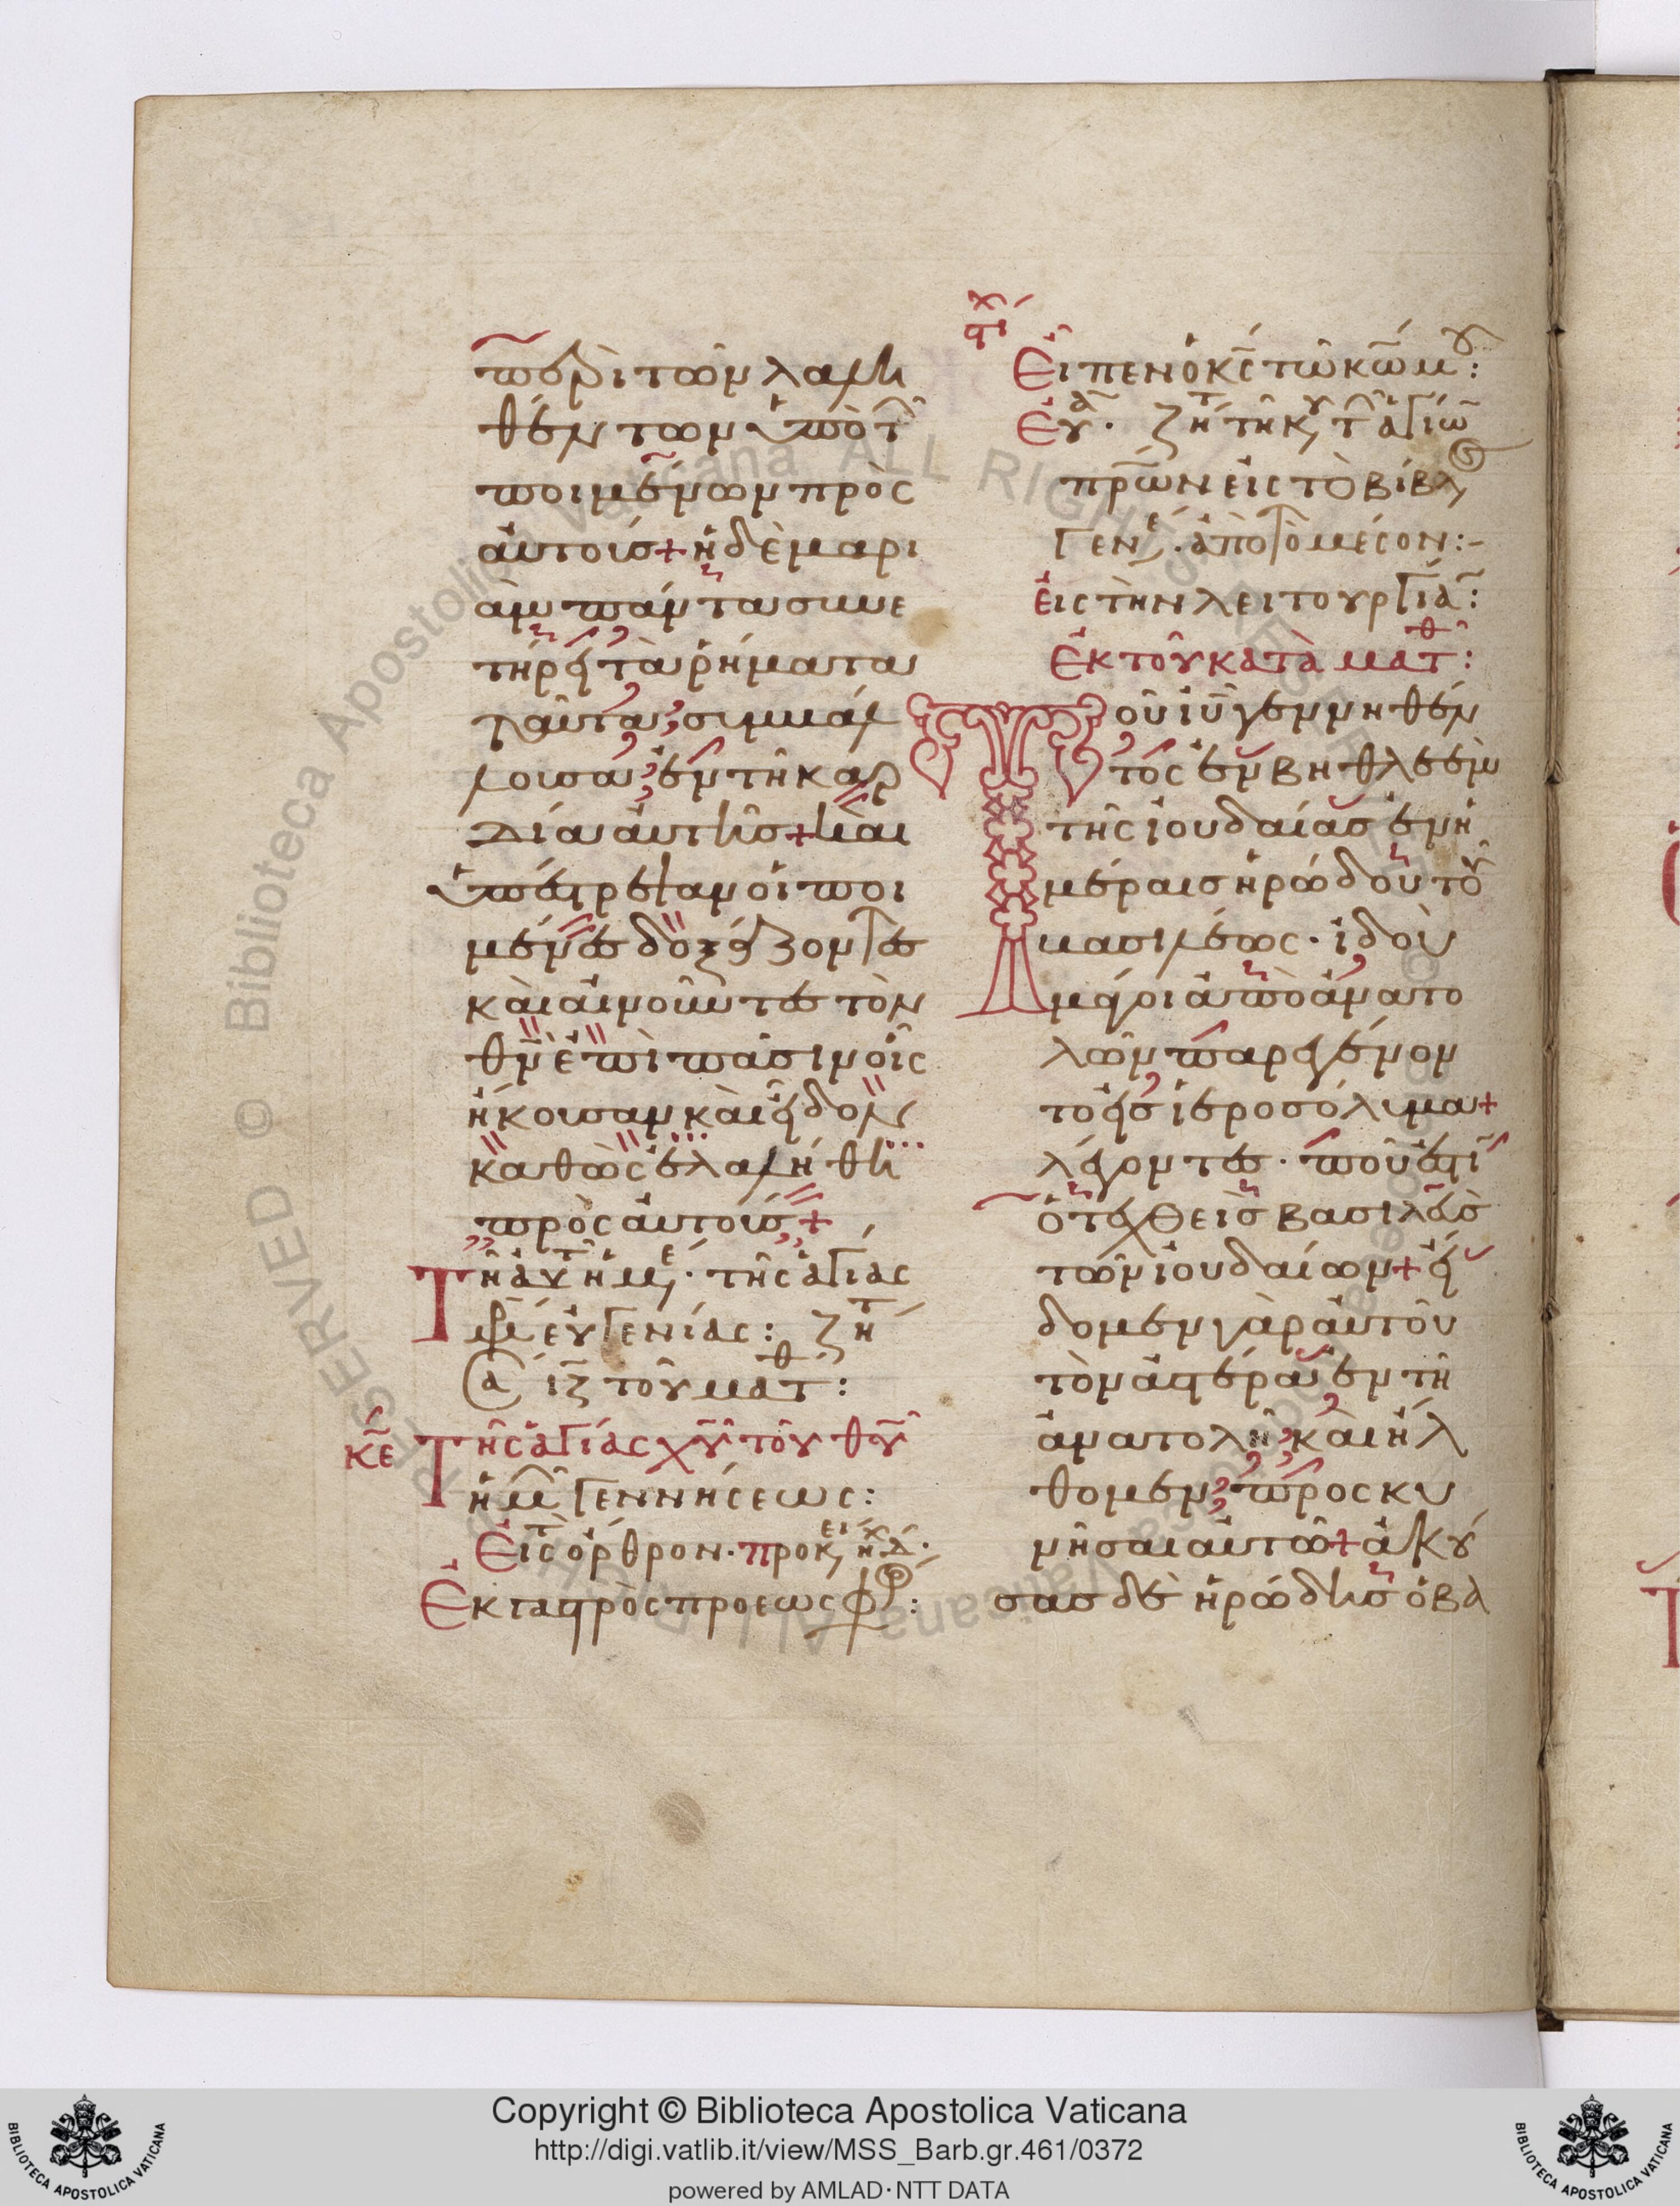 περὶ τῶν λαλη
θέντων ὑπὸ τ
ποιμένων πρὸς
αὐτούς + ἡ δὲ μαρι
ὰμ πάντα συνε
τήρει τὰ ῥήματα
ταῦτα συμβάλ
λουσα ἐν τῆ καρ
δία αὐτῆς + καὶ
ὑπέστρεψαν οἱ ποι
μένες δοξάζοντες
καὶ αἰνοῦντες τὸν
θν ἐπὶ πᾶσιν οἷς
ἤκουσαν καὶ εἶδον
καθὼς ἐλαλήθη
πρὸς αὐτούς +
Τῆ αυ ἡμε · τῆς ἁγίας
εὐγενίας : ζη
ἰζ τοῦ ματθ :
κε Τῆς ἁγίας χυ τοῦ θυ
ἡμ γεννήσεως :
Εἰς τ ὀρθρον · προκει ἠχ δ ·
Ἐκ γαστρὸς πρὸ ἑωσφ :
στι χ
Εἶπεν ὁ κς τῶ κω μου :
Ευα · ζητ τῆ κυ τ ἁγίω
πρων εἰς τὸ βιβλ
Γενε · ἀπὸ τὸ μέσον :-
εἰς τὴν λειτουργίαν :
Ἐκ τοῦ κατὰ ματθ :
Τοῦ ιυ γεννηθέν
τος ἐν βηθλεὲμ
τῆς ἰουδαίας ἐν ἡ
μέραις ἡρώδου τοῦ
βασιλέως · ἰδοὺ
μάγοι ἀπὸ ἀνατο
λῶν παρεγένον
το εἰς ἱεροσόλυμα +
λέγοντες · ποῦ ἐστιν
ὁ τεχθεὶς βασιλεὺς
τῶν ἰουδαίων + εἴ
δομεν γὰρ αὐτοῦ
τὸν ἀστέρα ἐν τῆ
ἀνατολῆ καὶ ἤλ
θομεν προσκυ
νῆσαι αὐτῶ + ἀκού
σας δὲ ἡρώδης ὁ βα
Copyright © Biblioteca Apostolica Vaticana
http://digi.vatlib.it/view/MSS_Barb.gr.461/0372
powered by AMLAD·NTT DATA